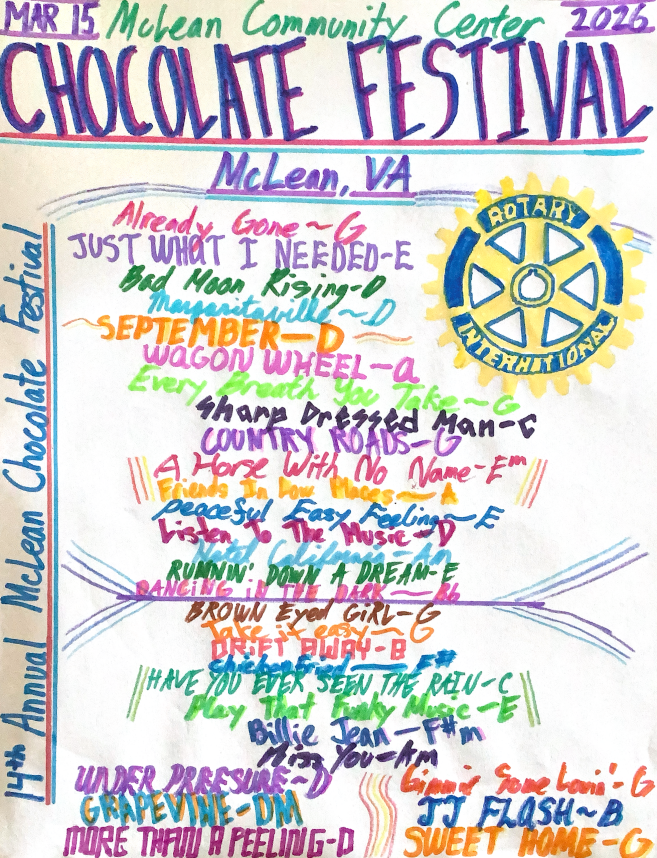 MAR 15 McLean Community Center 2026
CHOCOLATE FESTIVAL
McLean, VA
14th Annual McLean Chocolate Festival
ROTARY
INTERNATIONAL
Already Gone~G
JUST WHAT I NEEDED-E
Bad Moon Rising-D
Margaritaville~D
SEPTEMBER-D
WAGON WHEEL-a
Every Breath You Take~G
Sharp Dressed Man-C
COUNTRY ROADS-G
A Horse With No Name-Em
Friends In Low Places~A
Peaceful Easy Feeling~E
Listen To The Music-D
Hotel California-Am
RUNNIN' DOWN A DREAM-E
DANCING IN THE DARK-Bb
BROWN Eyed GIRL-G
Take it easy~G
DRIFT AWAY-B
Chicken Fried-F#
HAVE YOU EVER SEEN THE RAIN-C
Play That Funky Music-E
Billie Jean-F#m
Miss You-Am
UNDER PRREESURE~D
GRAPEVINE-DM
MORE THAN A PEELING-D
Gimmie Some Lovin'-G
JJ FLASH~B
SWEET HOME-G